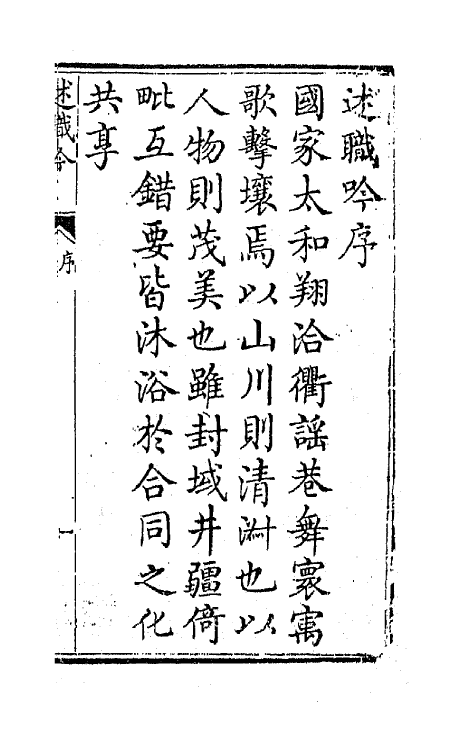 述職吟序
國家太和翔洽衢謡巷舞寰寓
歌擊壤焉以山川則清淑也以
人物則茂美也雖封域井疆倚
毗互錯要皆沐浴於合同之化
共享
述職吟
序
一